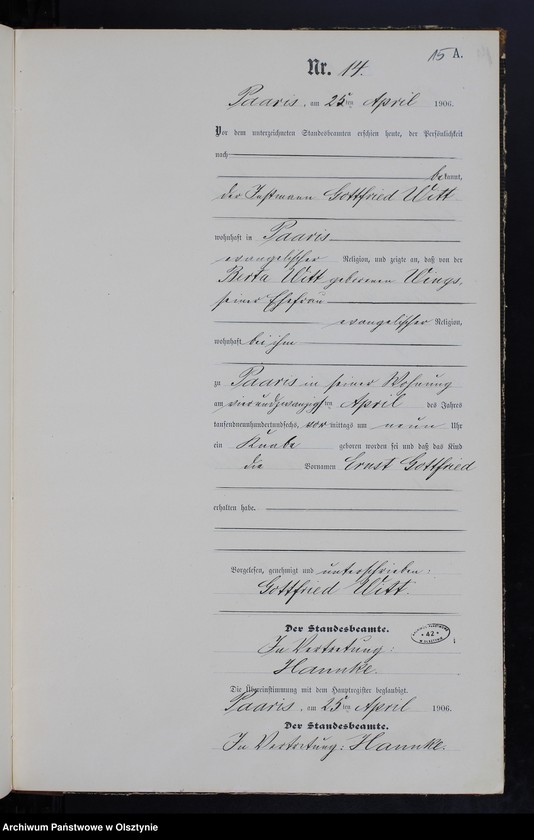 15 A.
Nr. 14.
Paaris, am 25ten April 1906.
Vor dem unterzeichneten Standesbeamten erschien heute, der Persönlichkeit
nach
bekannt,
der Instmann Gottfried Witt
wohnhaft in Paaris
evangelischer Religion, und zeigte an, daß von der
Berta Witt geborenen Wings,
seiner Ehefrau
evangelischer Religion,
wohnhaft bei ihm
zu Paaris in seiner Wohnung
am vierundzwanzigsten April des Jahres
tausendneunhundertundsechs, vormittags um neun Uhr
ein Knabe geboren worden sei und daß das Kind
die Vornamen Ernst Gottfried
erhalten habe.
Vorgelesen, genehmigt und unterschrieben:
Gottfried Witt.
Der Standesbeamte.
In Vertretung:
Hannke.
* 42 *
Die Übereinstimmung mit dem Hauptregister beglaubigt.
Paaris, am 25ten April 1906.
Der Standesbeamte.
In Vertretung: Hannke.
Archiwum Państwowe w Olsztynie